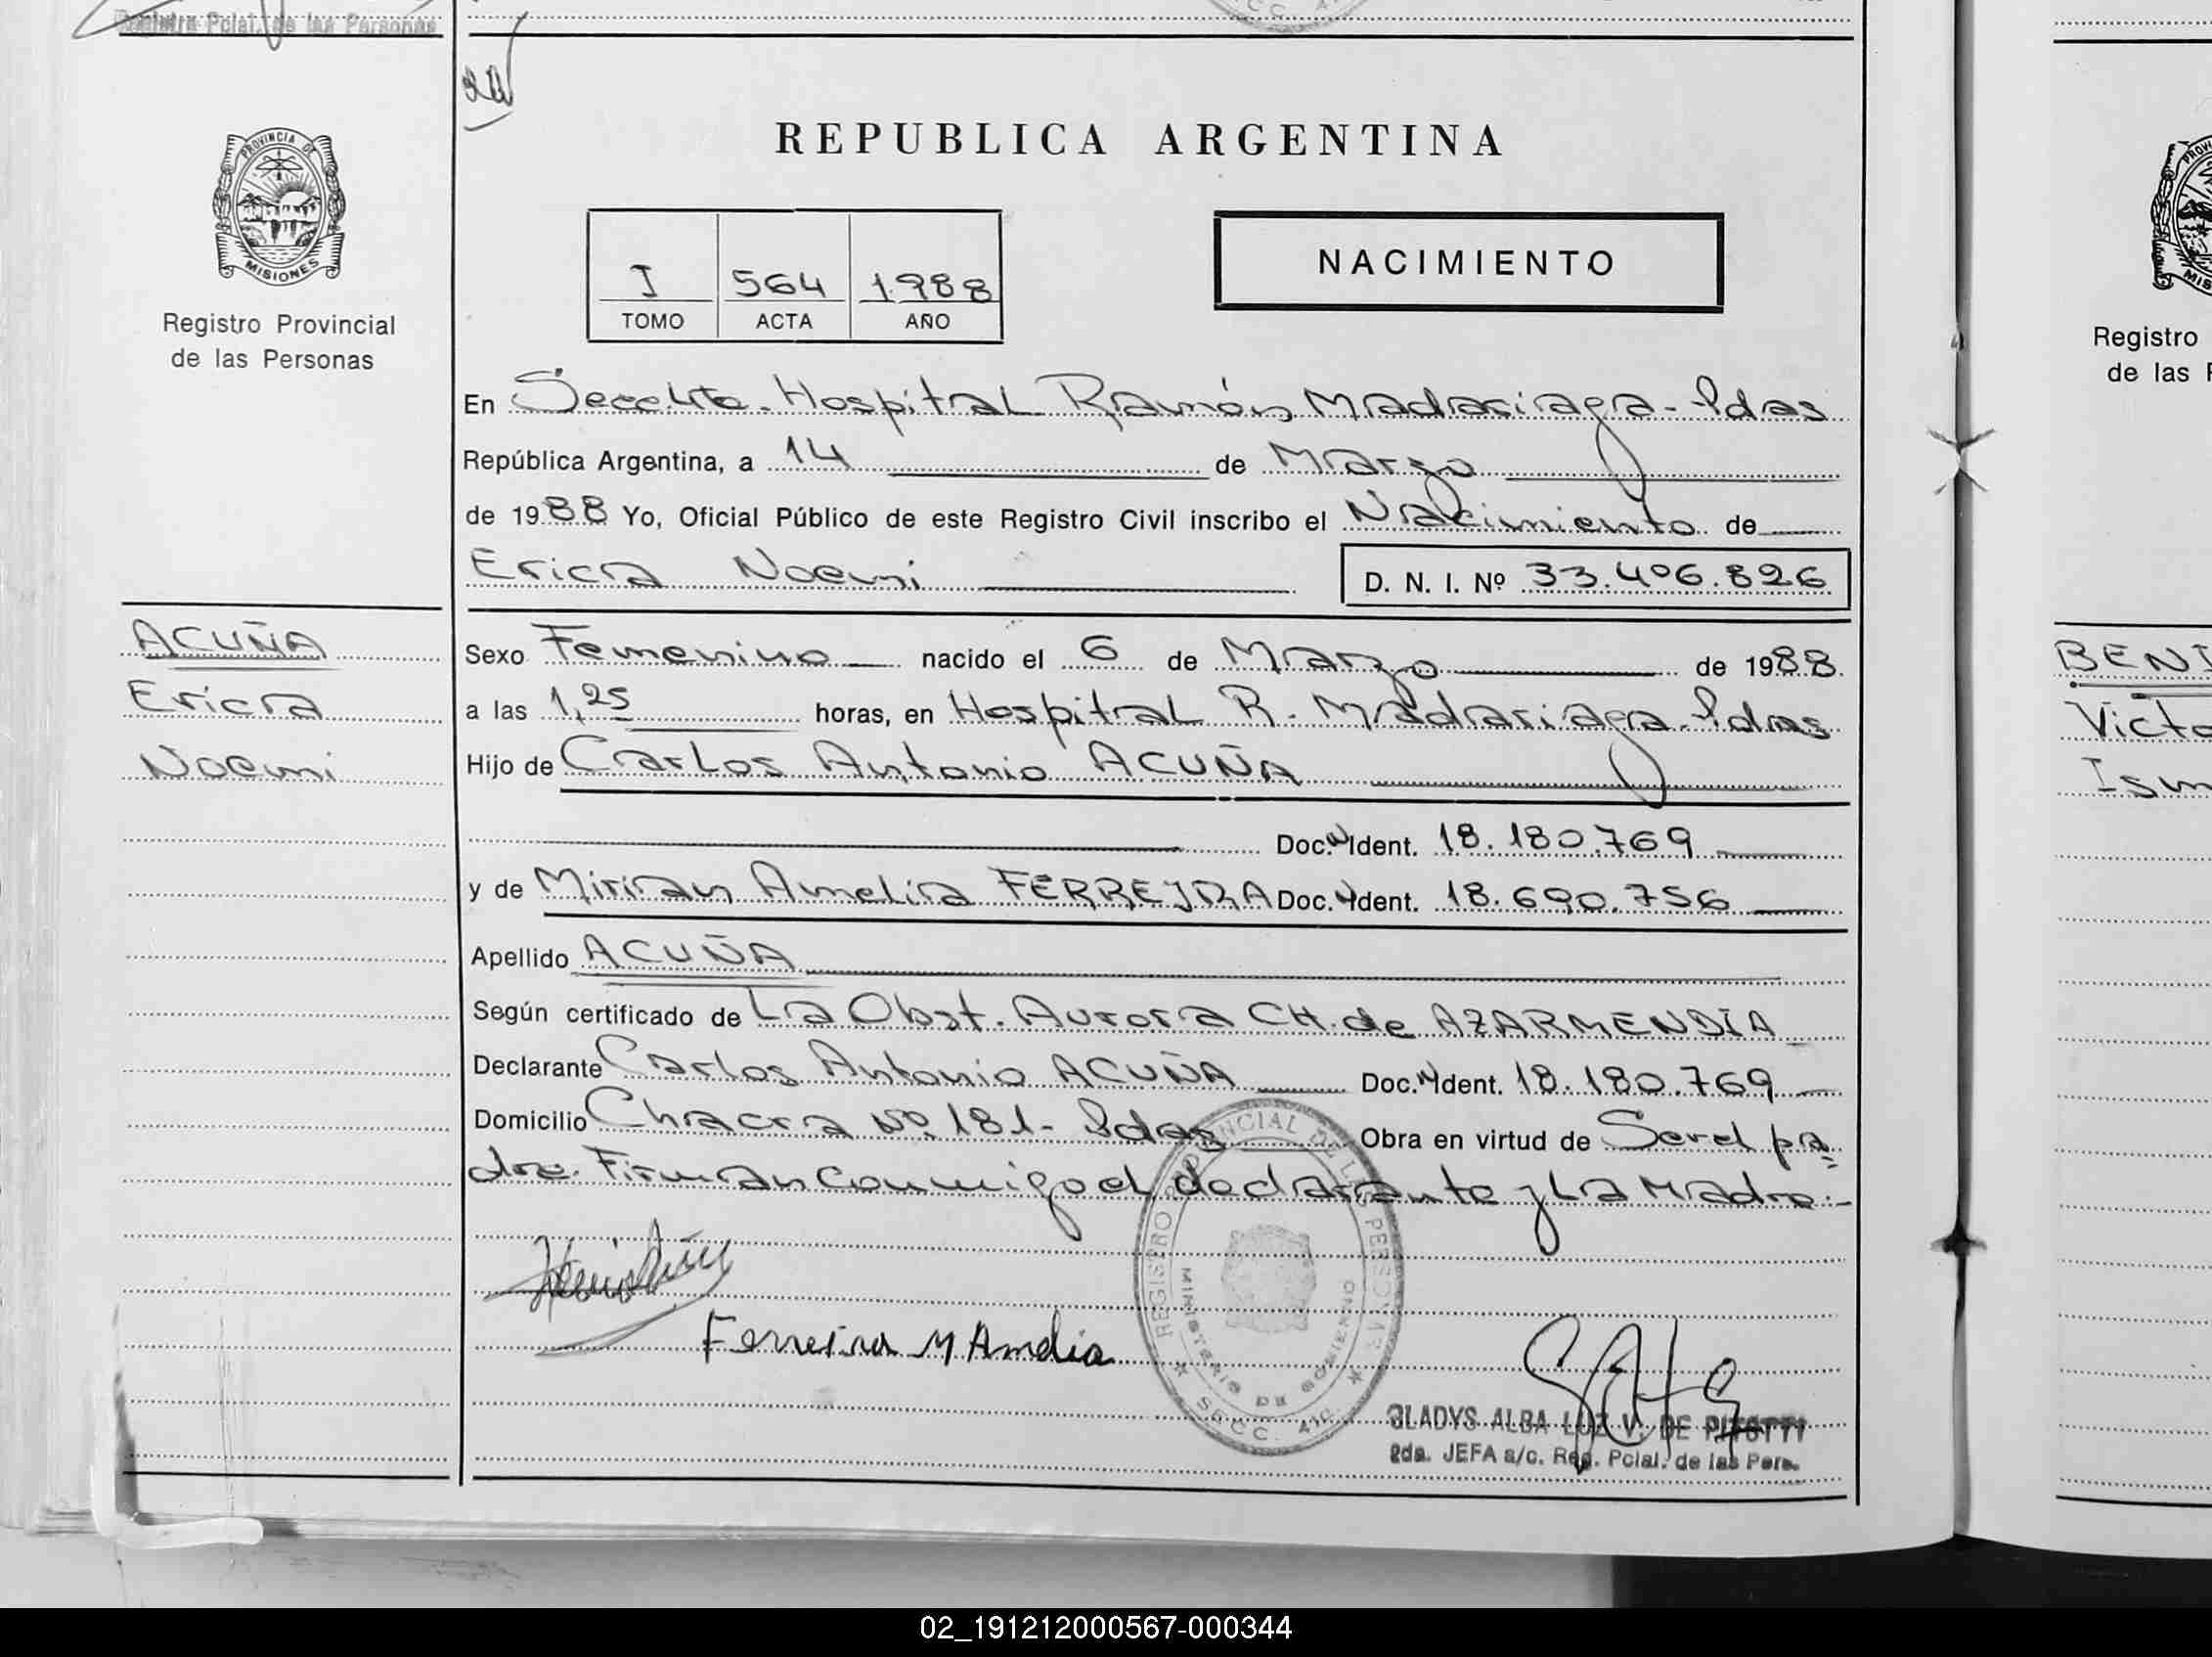 Registro Pcial. de las Personas
REPUBLICA ARGENTINA
PROVINCIA DE
MISIONES
Registro Provincial
de las Personas
I 564 1988
TOMO ACTA AÑO
NACIMIENTO
En Hospital Ramón Madariaga - Pdas
República Argentina, a 14 de Marzo
de 1988 Yo, Oficial Público de este Registro Civil inscribo el Nacimiento de
Erica Noemi
D. N. I. Nº 33.406.826
ACUÑA
Erica
Noemi
Sexo Femenino nacido el 6 de Marzo de 1988.
a las 1,25 horas, en Hospital R. Madariaga - Pdas
Hijo de Carlos Antonio ACUÑA
Doc. Ident. 18.180.769
y de Mirian Amelia FERREIRA Doc. Ident. 18.690.756
Apellido ACUÑA
Según certificado de La Obst. Aurora CH. de AZARMENDIA
Declarante Carlos Antonio ACUÑA Doc. Ident. 18.180.769
Domicilio Chacra Nº 181 - Pdas Obra en virtud de Ser el pa
dre. Firman Conmigo el declarante y La Madre.-
REGISTRO PROVINCIAL DE LAS PERSONAS
MINISTERIO DE GOBIERNO
SECC. 4ta.
Ferreira M Amelia
GLADYS ALBA LUZ V. DE PITOTTI
2da. JEFA a/c. Reg. Pcial. de las Pers.
Registro
de las
BENI
Victo
Ism
02_191212000567-000344